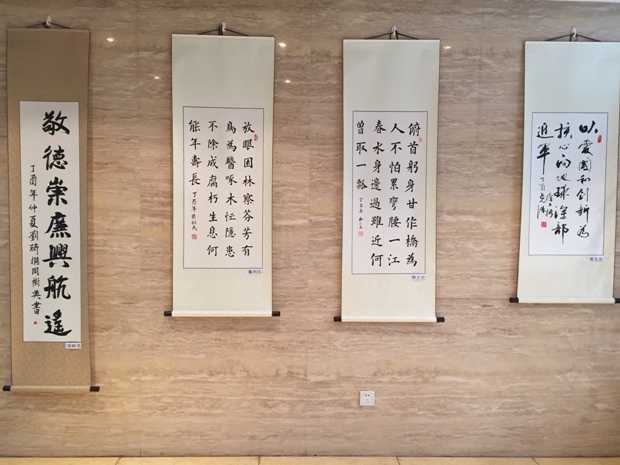 敬德崇廉興航遙
丁酉年仲夏劉琦撰周樹英書
放眼園林察芬芳有
鳥為醫啄木忙隱患
不除成腐朽生息何
能年壽長
丁酉年
俯首躬身甘作橋為
人不怕累彎腰一江
春水身邊過雖近何
曾取一瓢
以愛國和創新為
核心向地球深部
進軍
丁酉